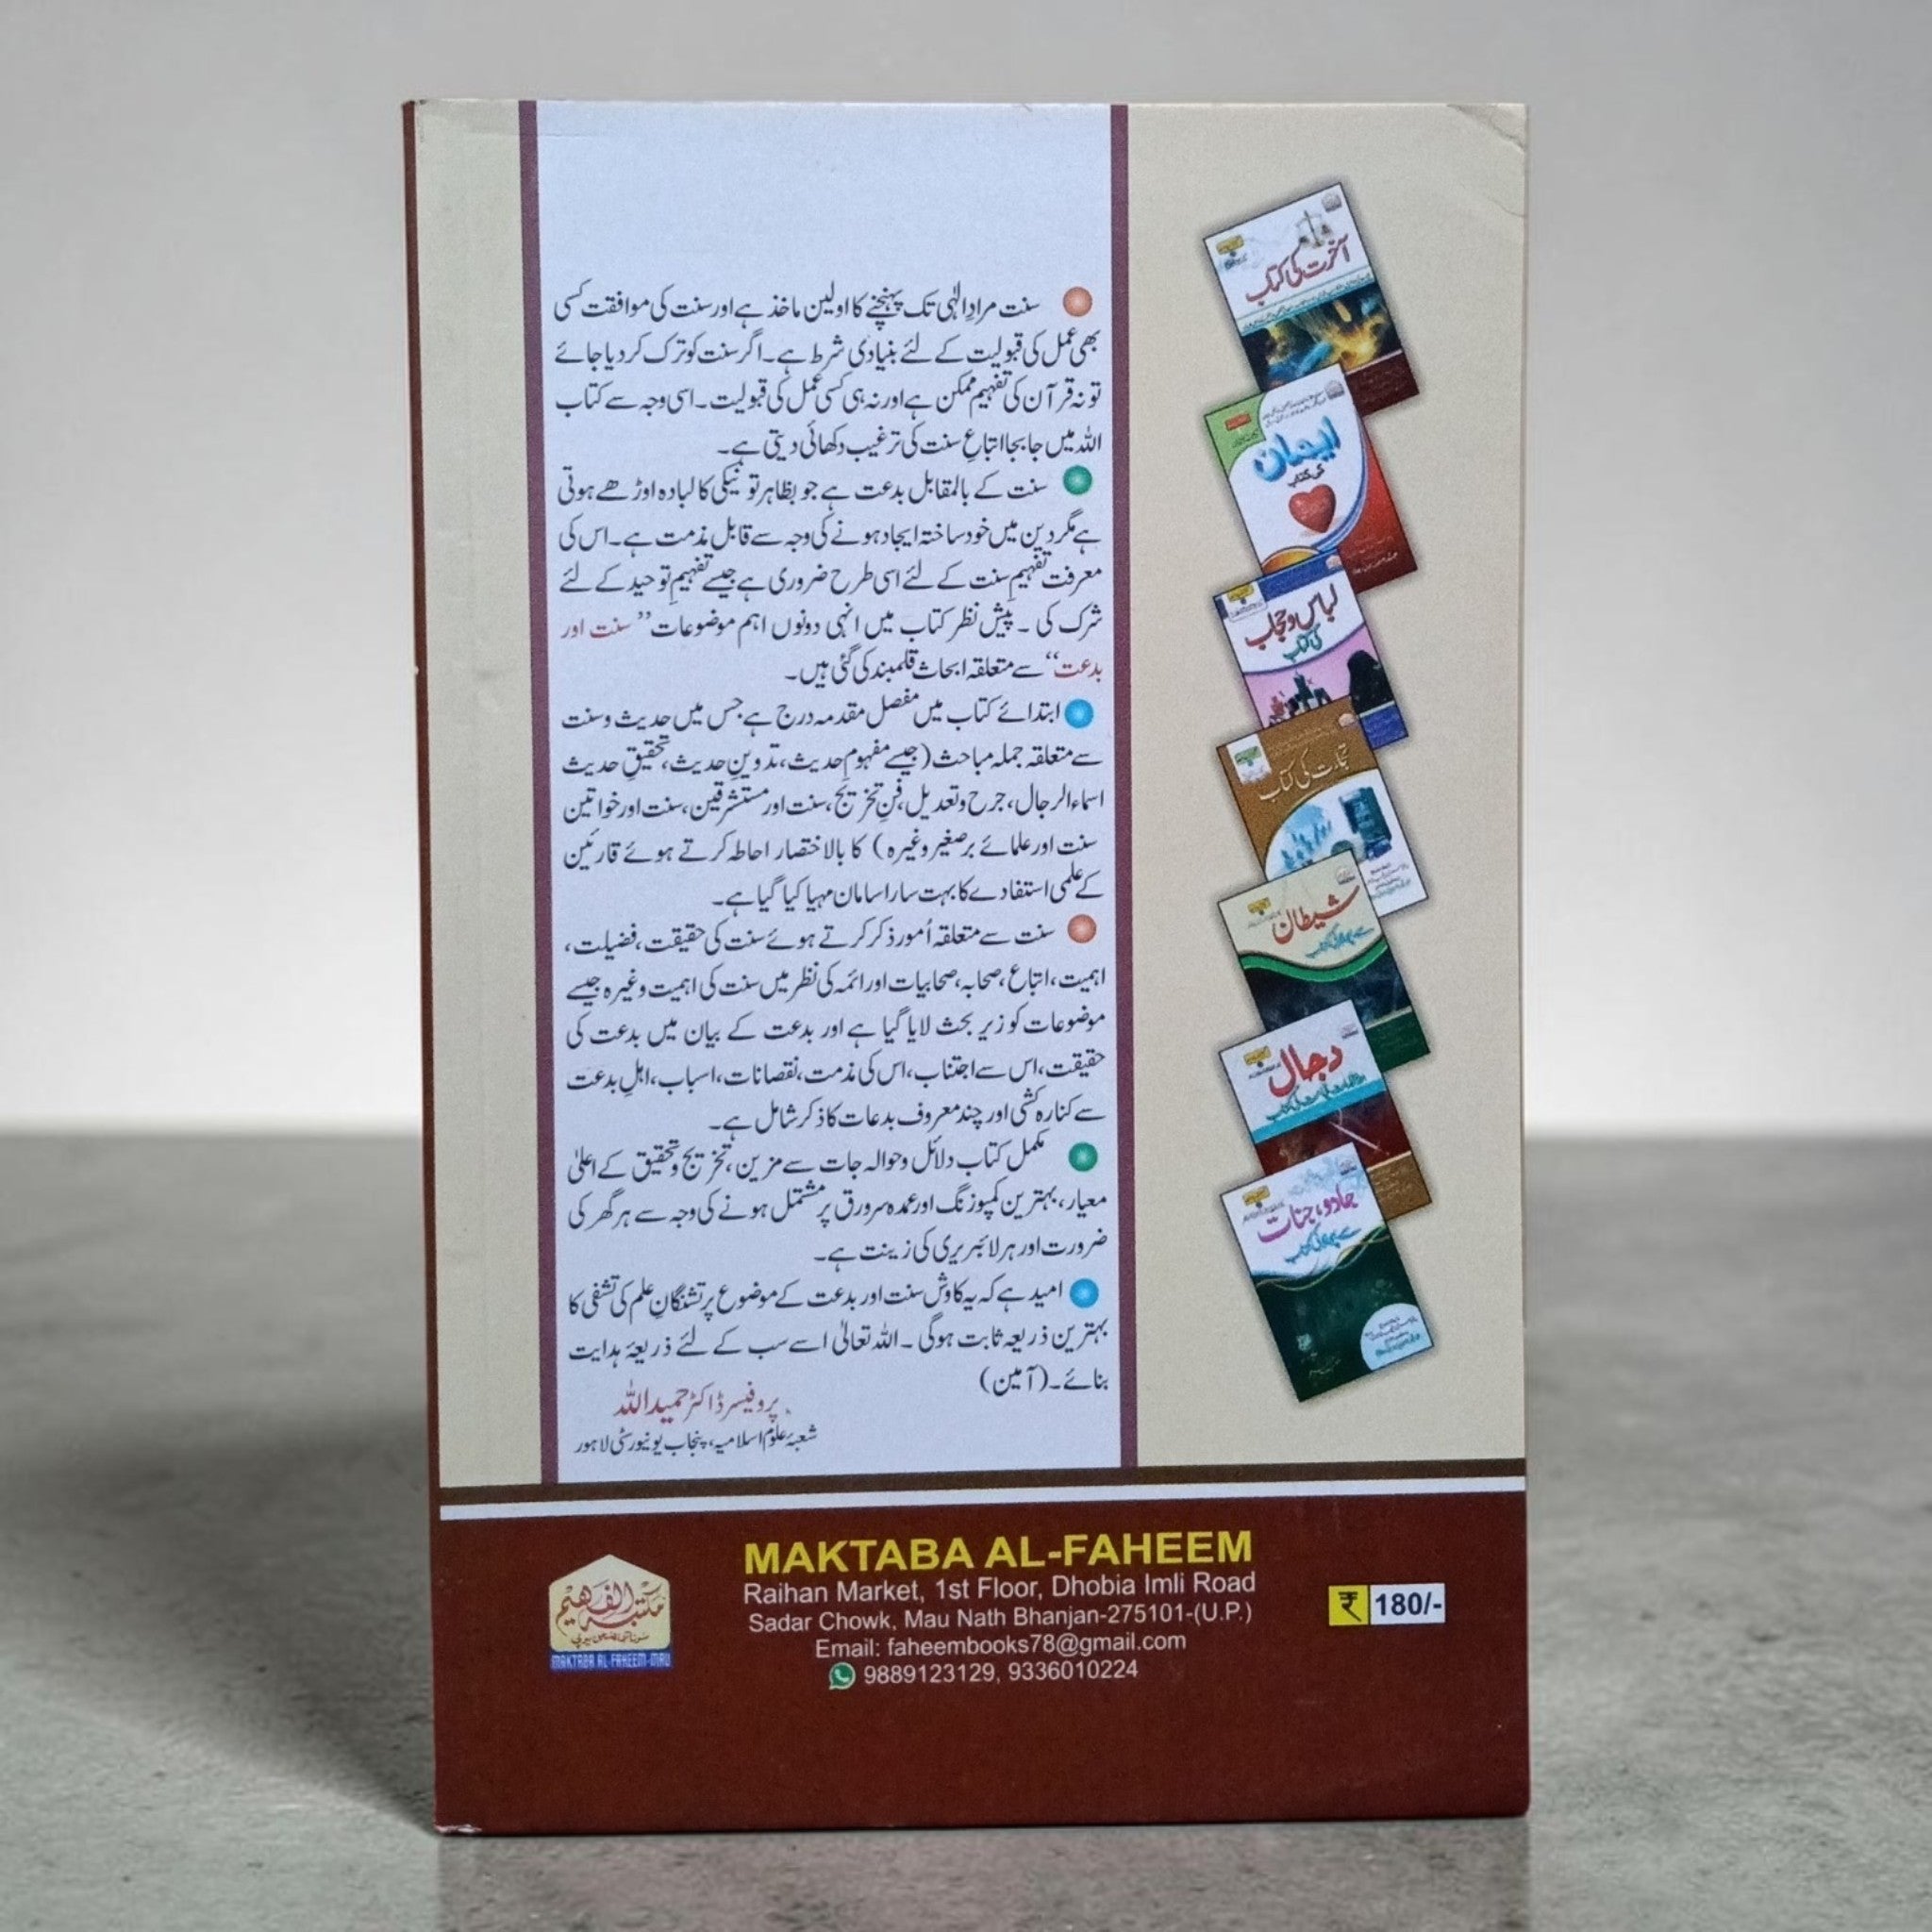 سنت مرادِ الٰہی تک پہنچنے کا اولین ماخذ ہے اور سنت کی موافقت کسی
بھی عمل کی قبولیت کے لئے بنیادی شرط ہے۔ اگر سنت کو ترک کر دیا جائے
تو نہ قرآن کی تفہیم ممکن ہے اور نہ ہی کسی عمل کی قبولیت۔ اسی وجہ سے کتاب
اللہ میں جا بجا اتباعِ سنت کی ترغیب دکھائی دیتی ہے۔
سنت کے بالمقابل بدعت ہے جو بظاہر تو نیکی کا لبادہ اوڑھے ہوتی
ہے مگر دین میں خود ساختہ ایجاد ہونے کی وجہ سے قابل مذمت ہے۔ اس کی
معرفت تفہیمِ سنت کے لئے اسی طرح ضروری ہے جیسے تفہیمِ توحید کے لئے
شرک کی ۔ پیش نظر کتاب میں انہی دونوں اہم موضوعات ”سنت اور
بدعت“ سے متعلقہ ابحاث قلمبند کی گئی ہیں۔
ابتدائے کتاب میں مفصل مقدمہ درج ہے جس میں حدیث و سنت
سے متعلقہ جملہ مباحث (جیسے مفہومِ حدیث، تدوینِ حدیث، تحقیقِ حدیث
اسماء الرجال، جرح و تعدیل، فنِ تخریج، سنت اور مستشرقین، سنت اور خواتین
سنت اور علمائے برصغیر وغیرہ) کا بالاختصار احاطہ کرتے ہوئے قارئین
کے علمی استفادے کا بہت سارا سامان مہیا کیا گیا ہے۔
سنت سے متعلقہ اُمور ذکر کرتے ہوئے سنت کی حقیقت، فضیلت،
اہمیت، اتباع، صحابہ، صحابیات اور ائمہ کی نظر میں سنت کی اہمیت وغیرہ جیسے
موضوعات کو زیر بحث لایا گیا ہے اور بدعت کے بیان میں بدعت کی
حقیقت، اس سے اجتناب، اس کی مذمت، نقصانات، اسباب، اہلِ بدعت
سے کنارہ کشی اور چند معروف بدعات کا ذکر شامل ہے۔
مکمل کتاب دلائل و حوالہ جات سے مزین، تخریج و تحقیق کے اعلیٰ
معیار، بہترین کمپوزنگ اور عمدہ سرورق پر مشتمل ہونے کی وجہ سے ہر گھر کی
ضرورت اور ہر لائبریری کی زینت ہے۔
امید ہے کہ یہ کاوش سنت اور بدعت کے موضوع پر تشنگانِ علم کی تشفی کا
بہترین ذریعہ ثابت ہوگی ۔ اللہ تعالیٰ اسے سب کے لئے ذریعۂ ہدایت
بنائے۔ (آمین)
پروفیسر ڈاکٹر حمید اللہ
شعبۂ علوم اسلامیہ، پنجاب یونیورسٹی لاہور
آخرت کی کتاب
ایمان
کی کتاب
لباس و حجاب
کی کتاب
تجارت کی کتاب
شیطان
سے بچاؤ کی کتاب
دجال
جادو، جنات
سے بچاؤ کی کتاب
مکتبہ الفہیم
MAKTABA AL-FAHEEM-MAU
MAKTABA AL-FAHEEM
Raihan Market, 1st Floor, Dhobia Imli Road
Sadar Chowk, Mau Nath Bhanjan-275101-(U.P.)
Email: faheembooks78@gmail.com
9889123129, 9336010224
₹ 180/-